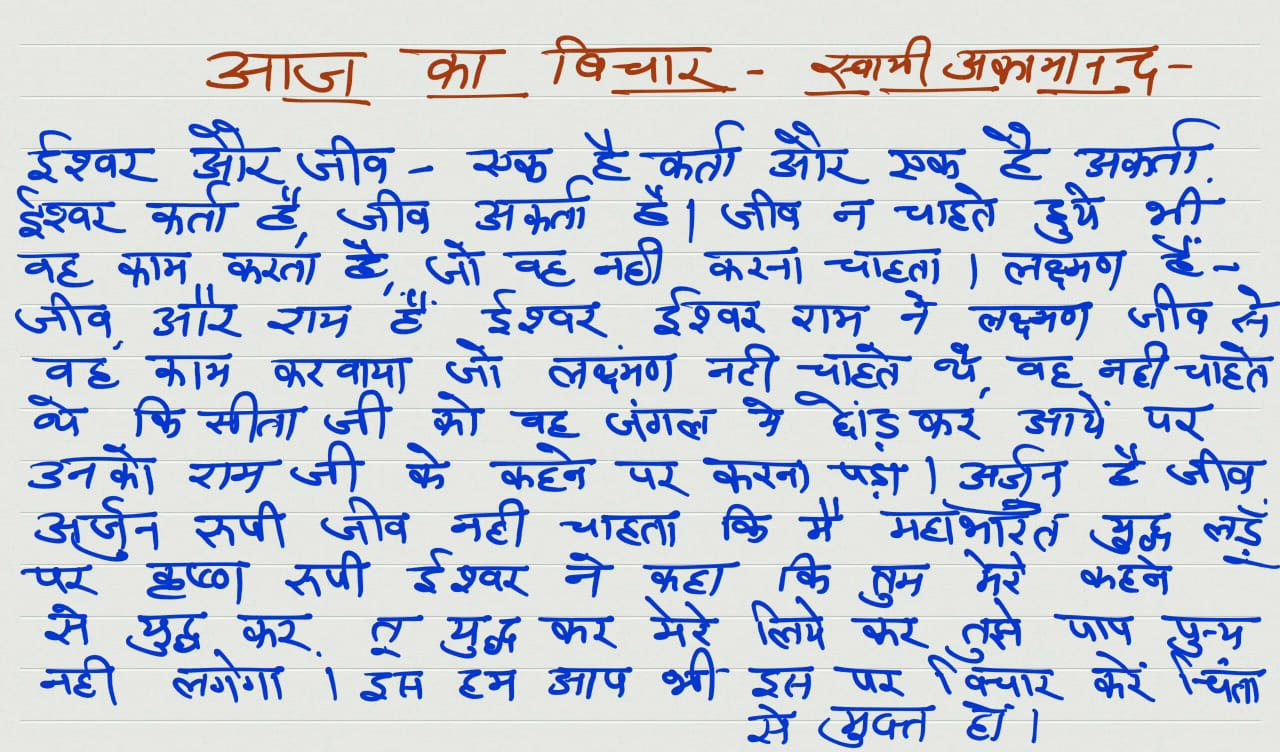 आज का विचार - स्वामी अकामानन्द -
ईश्वर और जीव - एक है कर्ता और एक है अकर्ता.
ईश्वर कर्ता है, जीव अकर्ता है। जीव न चाहते हुये भी
वह काम करता है, जो वह नही करना चाहता। लक्ष्मण हैं -
जीव, और राम हैं ईश्वर. ईश्वर राम ने लक्ष्मण जीव से
वह काम करवाया जो लक्ष्मण नही चाहते थे, वह नही चाहते
थे कि सीता जी को वह जंगल मे छोड़ कर आयें पर
उनको राम जी के कहने पर करना पड़ा। अर्जुन है जीव
अर्जुन रूपी जीव नही चाहता कि मै महाभारत युद्ध लड़ूँ
पर कृष्ण रूपी ईश्वर ने कहा कि तुम मेरे कहने
से युद्ध कर. तू युद्ध कर मेरे लिये कर तुझे पाप पुन्य
नही लगेगा। इस हम आप भी इस पर विचार करें चिंता
से मुक्त हों।